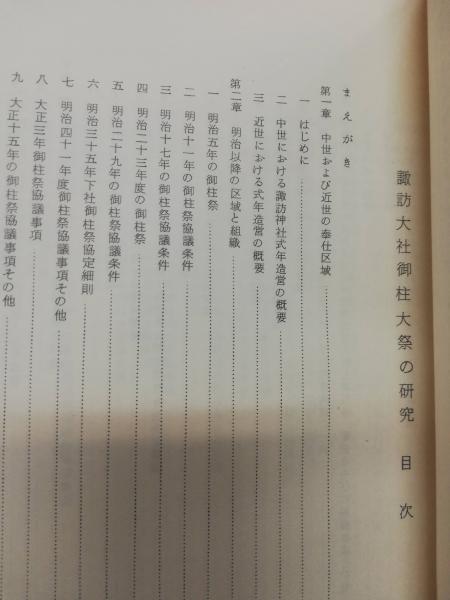 諏訪大社御柱大祭の研究 目次
まえがき
第一章 中世および近世の奉仕区域
一 はじめに
二 中世における諏訪神社式年造営の概要
三 近世における式年造営の概要
第二章 明治以降の区域と組織
一 明治五年の御柱祭
二 明治十一年の御柱祭協議条件
三 明治十七年の御柱祭協議条件
四 明治二十三年度の御柱祭
五 明治二十九年の御柱祭協議条件
六 明治三十五年下社御柱祭協定細則
七 明治四十一年度御柱祭協議事項その他
八 大正三年御柱祭協議事項
九 大正十五年の御柱祭協議事項その他